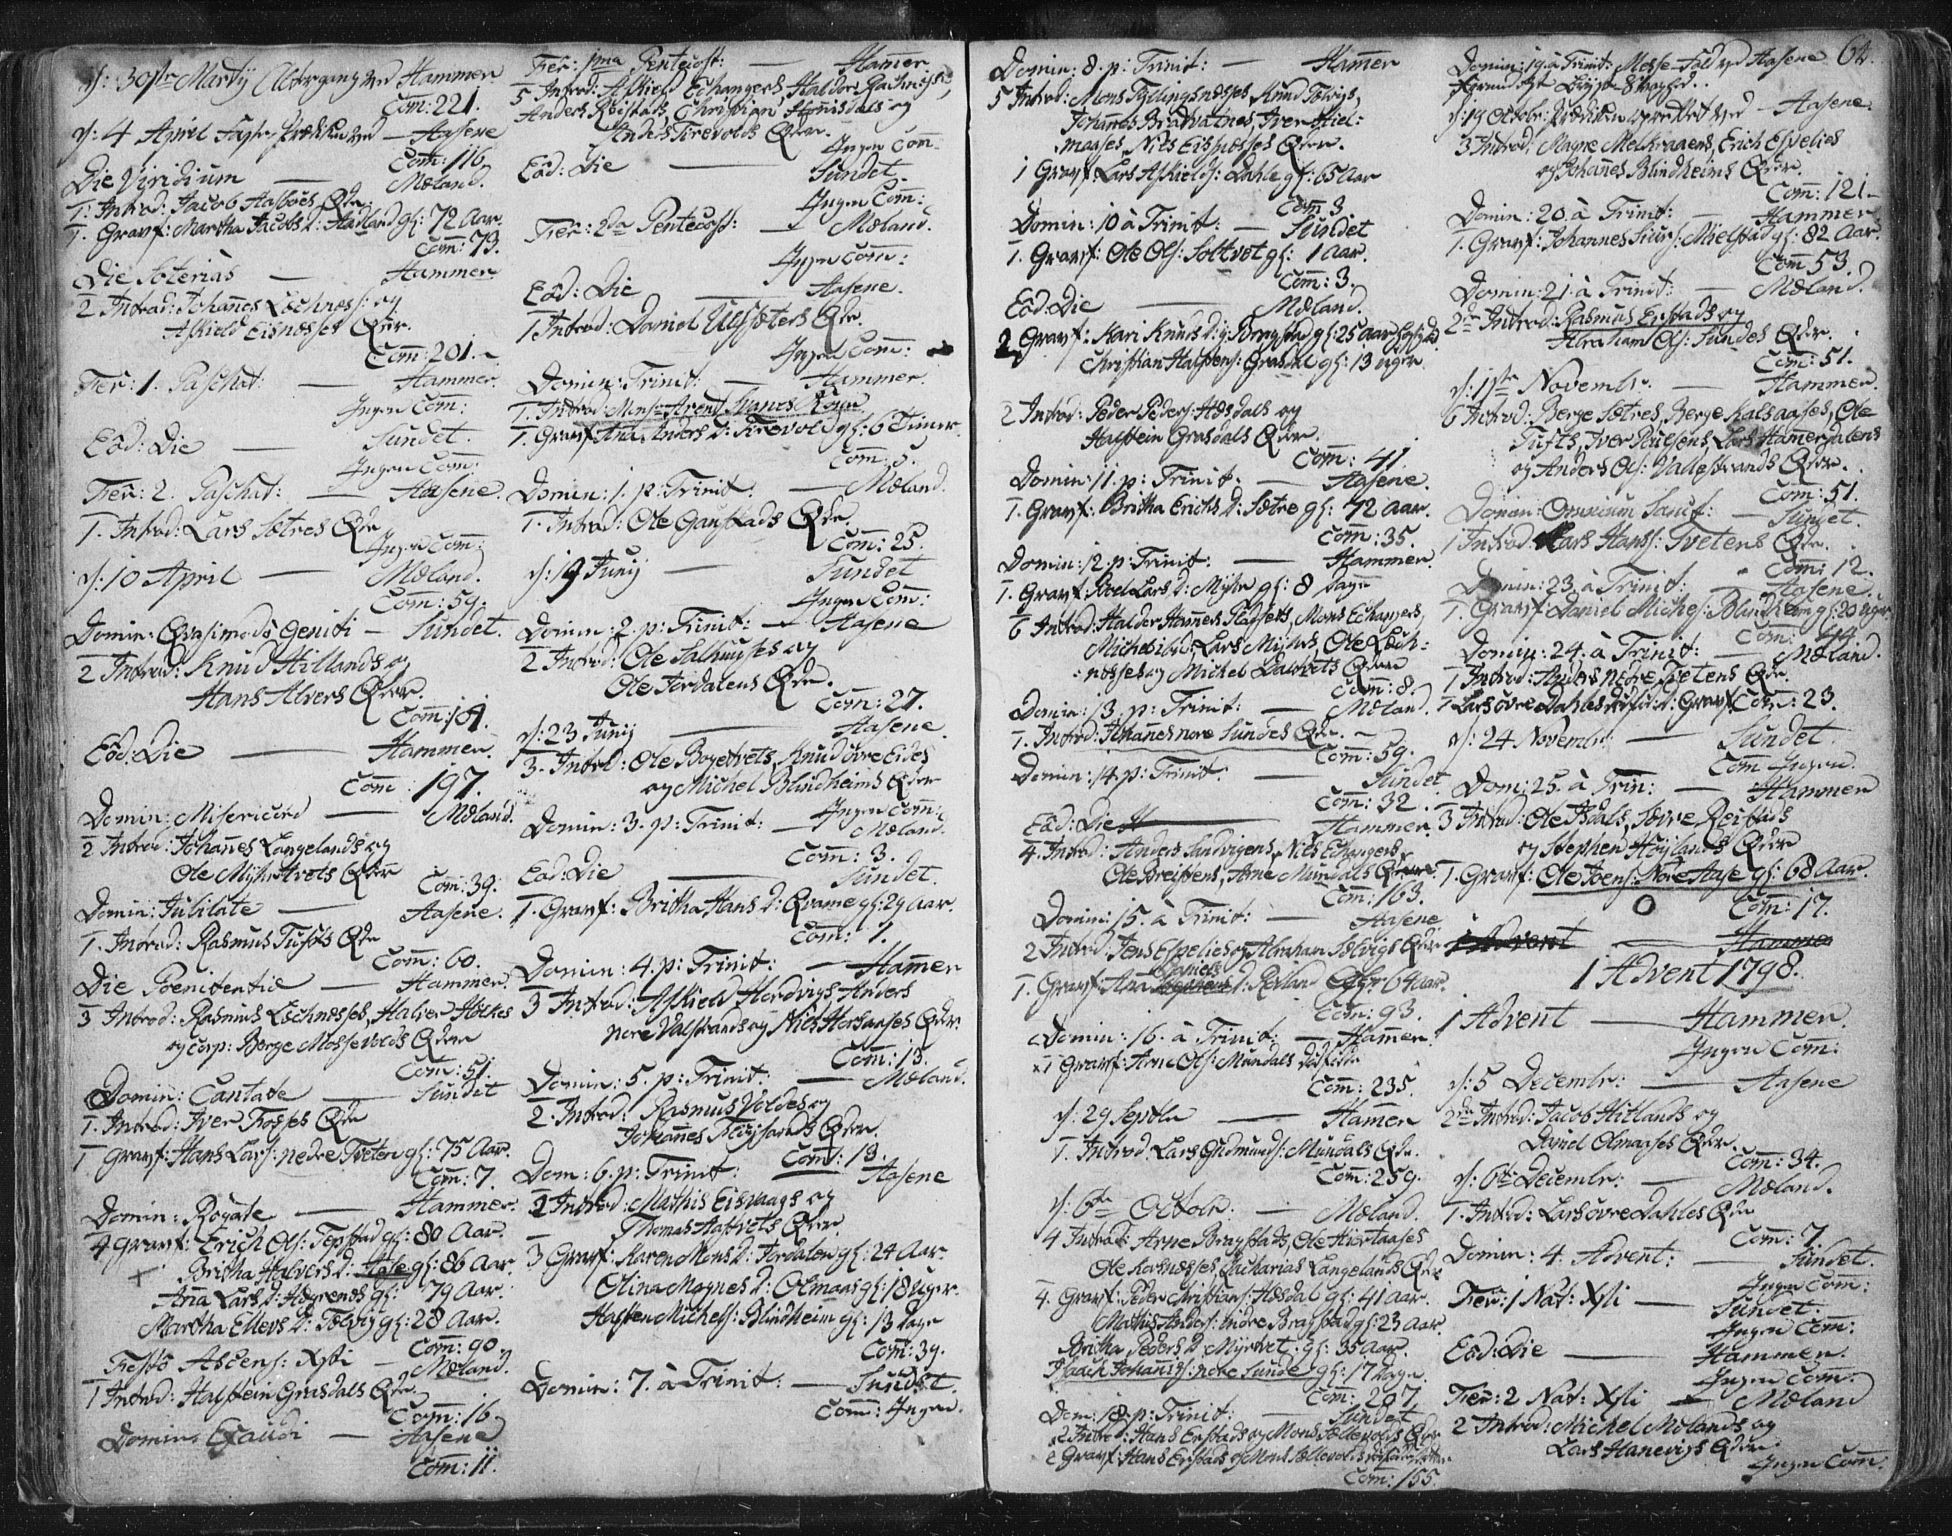 d: 30te Martij Altergang ved Hammer
Com: 221.
d: 4 April Faste Prædiken ved — Aasene
Com: 116.
Die Viridium — Mæland.
1. Introd: Jacob Aasboes Qde
1. Grauf: Martha Jacobs D: Aadland gl: 72 Aar.
Com: 73.
Die Soterias — Hammer
2 Introd: Johañes Lechness: og
Askield Eisnæsses Qdr.
Com: 201.
Fer: 1. Paschat: — Hammer.
Ingen Com:
Eod: Die — Sundet.
Ingen Com:
Fer: 2. Paschat: — Aasene.
1. Introd: Lars Sætres Qde
Ingen Com:
d: 10 April — Mæland.
Com: 59.
Domin: Qvasimodo Geniti — Sundet.
2 Introd: Knud Hillands og
Hans Alvers Qdr.
Com: 104.
Eod: Die — Hammer.
Com: 197.
Domin: Misericord — Mæland.
2 Introd: Johañes Langelands og
Ole Myhrtvets Qdr
Com: 39.
Domin: Jubilate — Aasene.
1. Introd: Rasmus Tufts Qde
Com: 60.
Die Poenitentiæ — Hammer.
3 Introd: Rasmus Lechnesses, Halver Holkes
og corp: Berge Mossevolds Qdr
Com: 51.
Domin: Cantate — Sundet
1. Introd: Iver Fosses Qde
1 Grauf: Hans Lars: nedre Tveten gl: 75 Aar.
Com: 7.
Domin: Rogate — Hammer.
4 Grauf: Erich Ols: Tepstad gl: 80 Aar.
Britha Halvers D: Aase gl: 86 Aar.
Aña Lars D: gl: 79 Aar.
Martha Ellevs D: Tolvig gl: 28 Aar.
Com: 90.
Festo Ascens: Xsti — Mæland.
1 Introd: Halstein Grasdals Qde.
Com: 16.
Domin: Exaudi — Aasene
Com: 11.
Fer: 1ma Pentecost: — Hamer
5 Introd: Askield Echangers, Haldor
Anders Reistads, Christian Hønisdals og
Anders Tirevolds Qdr.
Ingen Com:
Eod: Die — Sundet.
Ingen Com:
Fer: 2da Pentecost: — Mæland.
Ingen Com:
Eod: Die — Aasene.
1 Introd: Daniel Ulfsæters Qde.
Ingen Com:
Domin: Trinit: — Hammer.
1. Introd: Monsr Arent Kone
1. Grauf Aña Anders D: Tirevold gl: 6 Timer.
Com: 5.
Domin: 1. p: Trinit: — Mæland.
1. Introd: Ole Gaustads Qde.
Com: 25.
d: 19 Junij — Sundet
Ingen Com:
Domin: 2. p: Trinit: — Aasene
2 Introd: Ole Salhuuses og
Ole Jordalens Qdr.
Com: 27.
d: 23 Junij — Aasene.
3. Introd: Ole Bogetvets, Knud øvre Eides
og Michel Blindheims Qdr
Ingen Com:
Domin: 3. p: Trinit: — Mæland.
Com: 3.
Eod: Die — Sundet.
1. Grauf: Britha Hans D: Qvame gl: 29 Aar.
Com: 1.
Domin: 4. p: Trinit: — Hamer
3 Introd: Askield Hordvigs, Anders
nore Valstrands og Niels Horsaases Qdr.
Com: 13.
Domin: 5. p: Trinit: — Mæland.
2. Introd: Rasmus Voldes og
Johañes Qdr.
Com: 13.
Dom: 6. p: Trinit: — Aasene
2 Introd: Mathis Eisvaags og
Thomas Hatvets Qdr.
3 Grauf: Karen Mons D: Jordalen gl: 24 Aar.
Olina Magnes D: Olmaas gl: 18 Uger.
Halsten Michels: Blindheim gl: 13 Dage
Com: 39.
Domin: 7. à Trinit: — Sundet.
Com: Ingen.
Domin: 8. p: Trinit: — Hamer
5 Introd: Mons Tyslingnæsses, Knud Tolvigs,
Johañes Bradvatnes, Iver
maases, Nils Eisnæsses Qdr.
1 Grauf: Lars Askields: Dahle gl: 65 Aar
Com 3
Domin: 10 à Trinit: — Sundet
1. Grauf: Ole Ols: Soltvet gl: 1 Aar.
Com: 3.
Eod: Die — Mæland.
2 Grauf: Kari Knuds D: y: Bragstad gl: 25 Aar
Christian Halstens: Grasdal gl: 13 uger
2 Introd: Peder Peders: Hosdals og
Halstein Grasdals Qdr.
Com: 41.
Domin: 11. p: Trinit: — Aasene.
1. Grauf: Britha Erichs D: Sætre gl: 72 Aar.
Com: 35.
Domin: 12. p: Trinit: — Hammer.
1. Grauf. Lars D: Myhr gl: 8 Dage
6 Introd: Haldor Mons Echangers,
Michel ibid, Lars Myhrs, Ole Lech-
nesses og Michel Qdr
Com: 8.
Domin: 13. p: Trinit: — Mæland.
1. Introd: Johañes nore Sundes Qde.
Com: 59.
Domin: 14. p: Trinit: — Sundet
Com: 32
Eod: Die — Hammer.
4. Introd: Anders Sandvigens, Nils Echangers,
Ole Breistens, Arne Mundals Qdr
Com: 163.
Domin: 15. à Trinit: — Aasene
2 Introd: Jens Espelies og Abraham Solvigs Qdr
1. Grauf: Aña Daniels D: Reeland gl: 64 Aar.
Com: 93.
Domin: 16. à Trinit: — Hamer.
1 Grauf: Arne Ols: Mundals
Com: 235.
d: 29 Septbr — Hamer
1. Introd: Lars Gudmunds: Mundals Qde.
Com: 259.
d: 6te Octobr. — Mæland.
4 Introd: Arne Bragstads, Ole Hiortaases
Ole Karnesses, Zacharias Langelands Qdr
4. Grauf: Peder Christians: Hosdal gl: 41 Aar.
Mathis Anders: indre Bragstad gl: 23 Aar.
Britha Peders D: Myrtvet gl: 35 Aar.
Isaach Johañis: nore Sunde gl: 17 Dage.
Com: 207
Dom: 18. p: Trinit: — Sundet
2 Introd: Hans Eristads og Mons Sællevolds Qdr
2 Grauf: Hans Eristads og Mons Sællevolds
Com: 155.
Domin: 19. à Trinit: Messe Fald ved Aasene 64.
d: 19 Octobr: Prædiken ved — Aasene.
3 Introd: Magne Melkeraaens, Erich Espelies
og Johañes Blindheims Qdr.
Com: 121.
Domin: 20. à Trinit: — Hammer.
1. Grauf: Johannes Siurs: Mielstad gl: 82 Aar.
Com 53.
Domin: 21. à Trinit: — Mæland.
2de Introd: Rasmus Eristads og
Abraham Ols: Sundes Qdr.
Com: 51.
d: 1ste Novembr. — Hammer.
6 Introd: Berge Sætres, Berge Kalsaases, Ole
Tufts, Iver Poulsens, Lars Hamersdalens
og Anders Ols: Vallestrands Qdr.
Com: 51.
Domin: Omnium Sanct: — Sundet.
1 Introd: Lars Hans: Tvetens Qde.
Com: 12.
Domin: 23 à Trinit: — Aasene.
1. Grauf: Daniel Michels: Blindheim gl: 20 uger
Com: 44.
Domin: 24. à Trinit: — Mæland.
1 Introd: Anders nedre Tvetens Qde.
1 Lars øvre Dahles Grauf Com: 23.
d: 24 Novembr: — Sundet.
Com Ingen.
Dom: 25. à Trin: — Hammer
3 Introd: Ole Isdals, Sævre Reistads
og Stephen Høylands Qdr
1. Grauf: Ole Joens: Nore Aase gl: 68 Aar.
Com: 17.
1 Advent — Hammer
1 Advent 1798.
1 Advent — Hammer.
Ingen Com:
d: 5 Decembr: — Aasene
2de Introd: Jacob Hitlands og
Daniel Olmaases Qdr.
Com: 34.
d: 6te Decembr: — Mæland.
1. Introd: Lars øvre Dahles Qde
Com: 7.
Domin: 4. Advent: — Sundet.
Ingen Com:
Fer: 1 Nat: Xsti — Sundet.
Ingen Com:
Eod: Die — Hammer.
Ingen Com:
Fer: 2 Nat: Xsti — Mæland
2 Introd: Michel Mølands og
Lars Hanevigs Qdr.
Ingen Com: